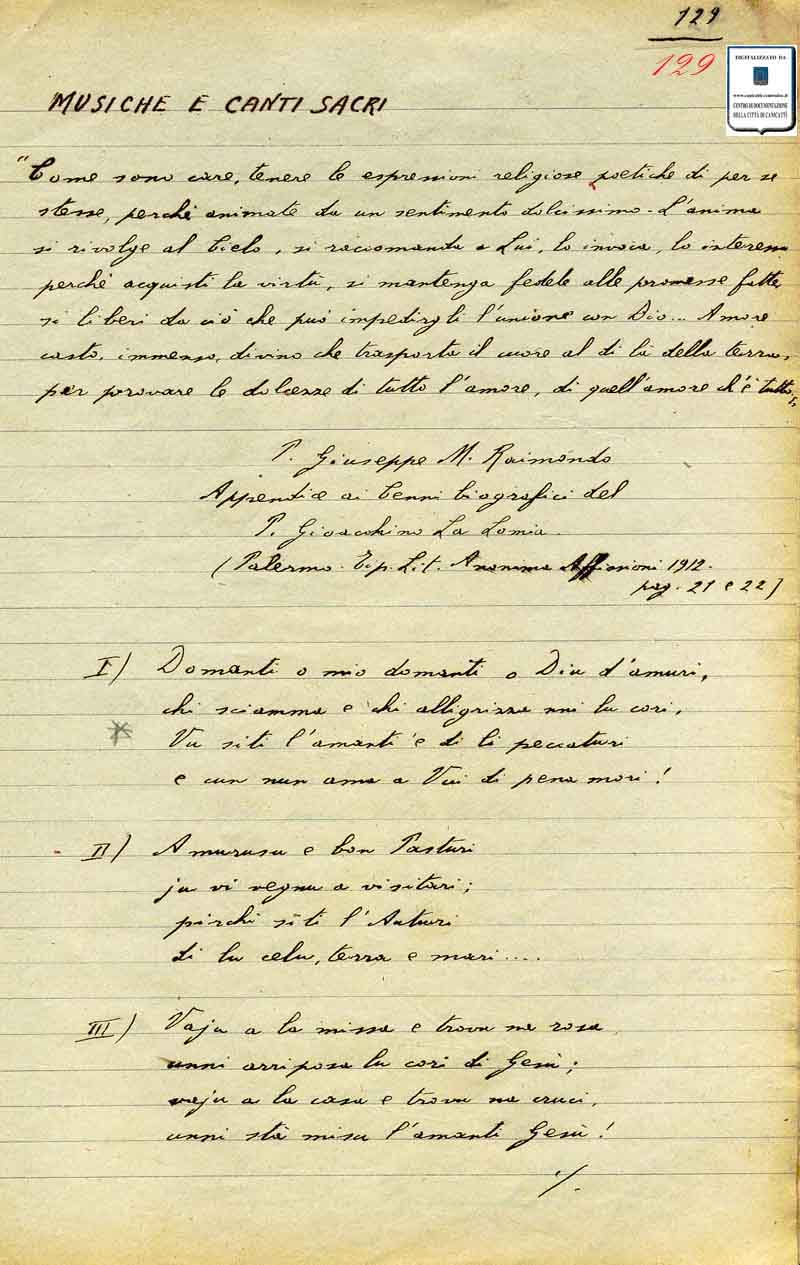 129
129
DIGITALIZZATO DA
CENTRO DI DOCUMENTAZIONE
DELLA CITTÀ DI CANICATTÌ
MUSICHE E CANTI SACRI
"Come sono care, tenere le espressioni religiose, poetiche di per se
stesse, perchè animate da un sentimento dolcissimo - L'anima
si rivolge al Cielo, si raccomanda a Lui, lo invoca, lo interessa
perchè acquisti la virtù, si mantenga fedele alle promesse fatte,
si liberi da ciò che può impedirgli l'unione con Dio... Amore
casto, immenso, divino che trasporta il cuore al di là della terra,
per provare le dolcezze di tutto l'amore, di quell'amore ch'è tutto,,
P. Giuseppe M. Raimondo
Appendice ai Cenni biografici del
P. Gioacchino La Lomia
(Palermo - Tip. Lit. Anonima Affissioni 1912.
pag. 21 e 22)
I) Domanti o mio domanti o Diu d'amuri,
chi sciamma e chi alligrizza nni lu cori,
Vu siti l'amanti è di li peccaturi
e cun nun ama a Vui di pena mori!
II) Amurusu e bon Pasturi
ju vi vegnu a visitari;
pirchì siti l'Auturi
di lu celu, terra e mari....
III) Vaju a la missa e trovu na rosa
unni arriposa lu cori di Gesù;
vaju a la casa e trovu na cruci,
unni stà misu l'amanti Gesù!
./.